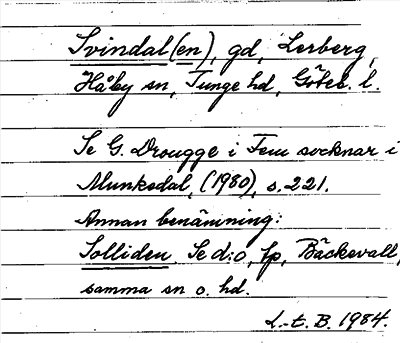 Svindal(en), gd, Lerberg,
Håby sn, Tunge hd, Göteb. l.
Se G. Drougge i Fem socknar i
Munkedal, (1980), s. 221.
Annan benämning:
Solliden Se d:o, lp, Bäckevall,
samma sn o. hd.
L-t. B. 1984.